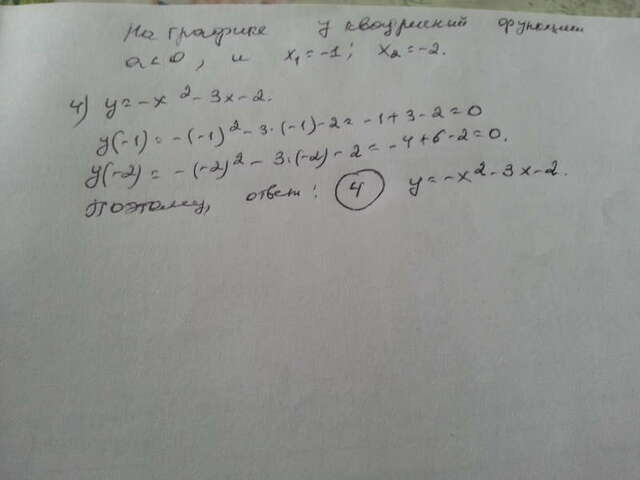 На графике у квадратной функции
a < 0, и x₁ = -1; x₂ = -2.
4) y = -x² - 3x - 2.
y(-1) = -(-1)² - 3·(-1) - 2 = -1 + 3 - 2 = 0
y(-2) = -(-2)² - 3·(-2) - 2 = -4 + 6 - 2 = 0.
Поэтому, ответ: 4 y = -x² - 3x - 2.